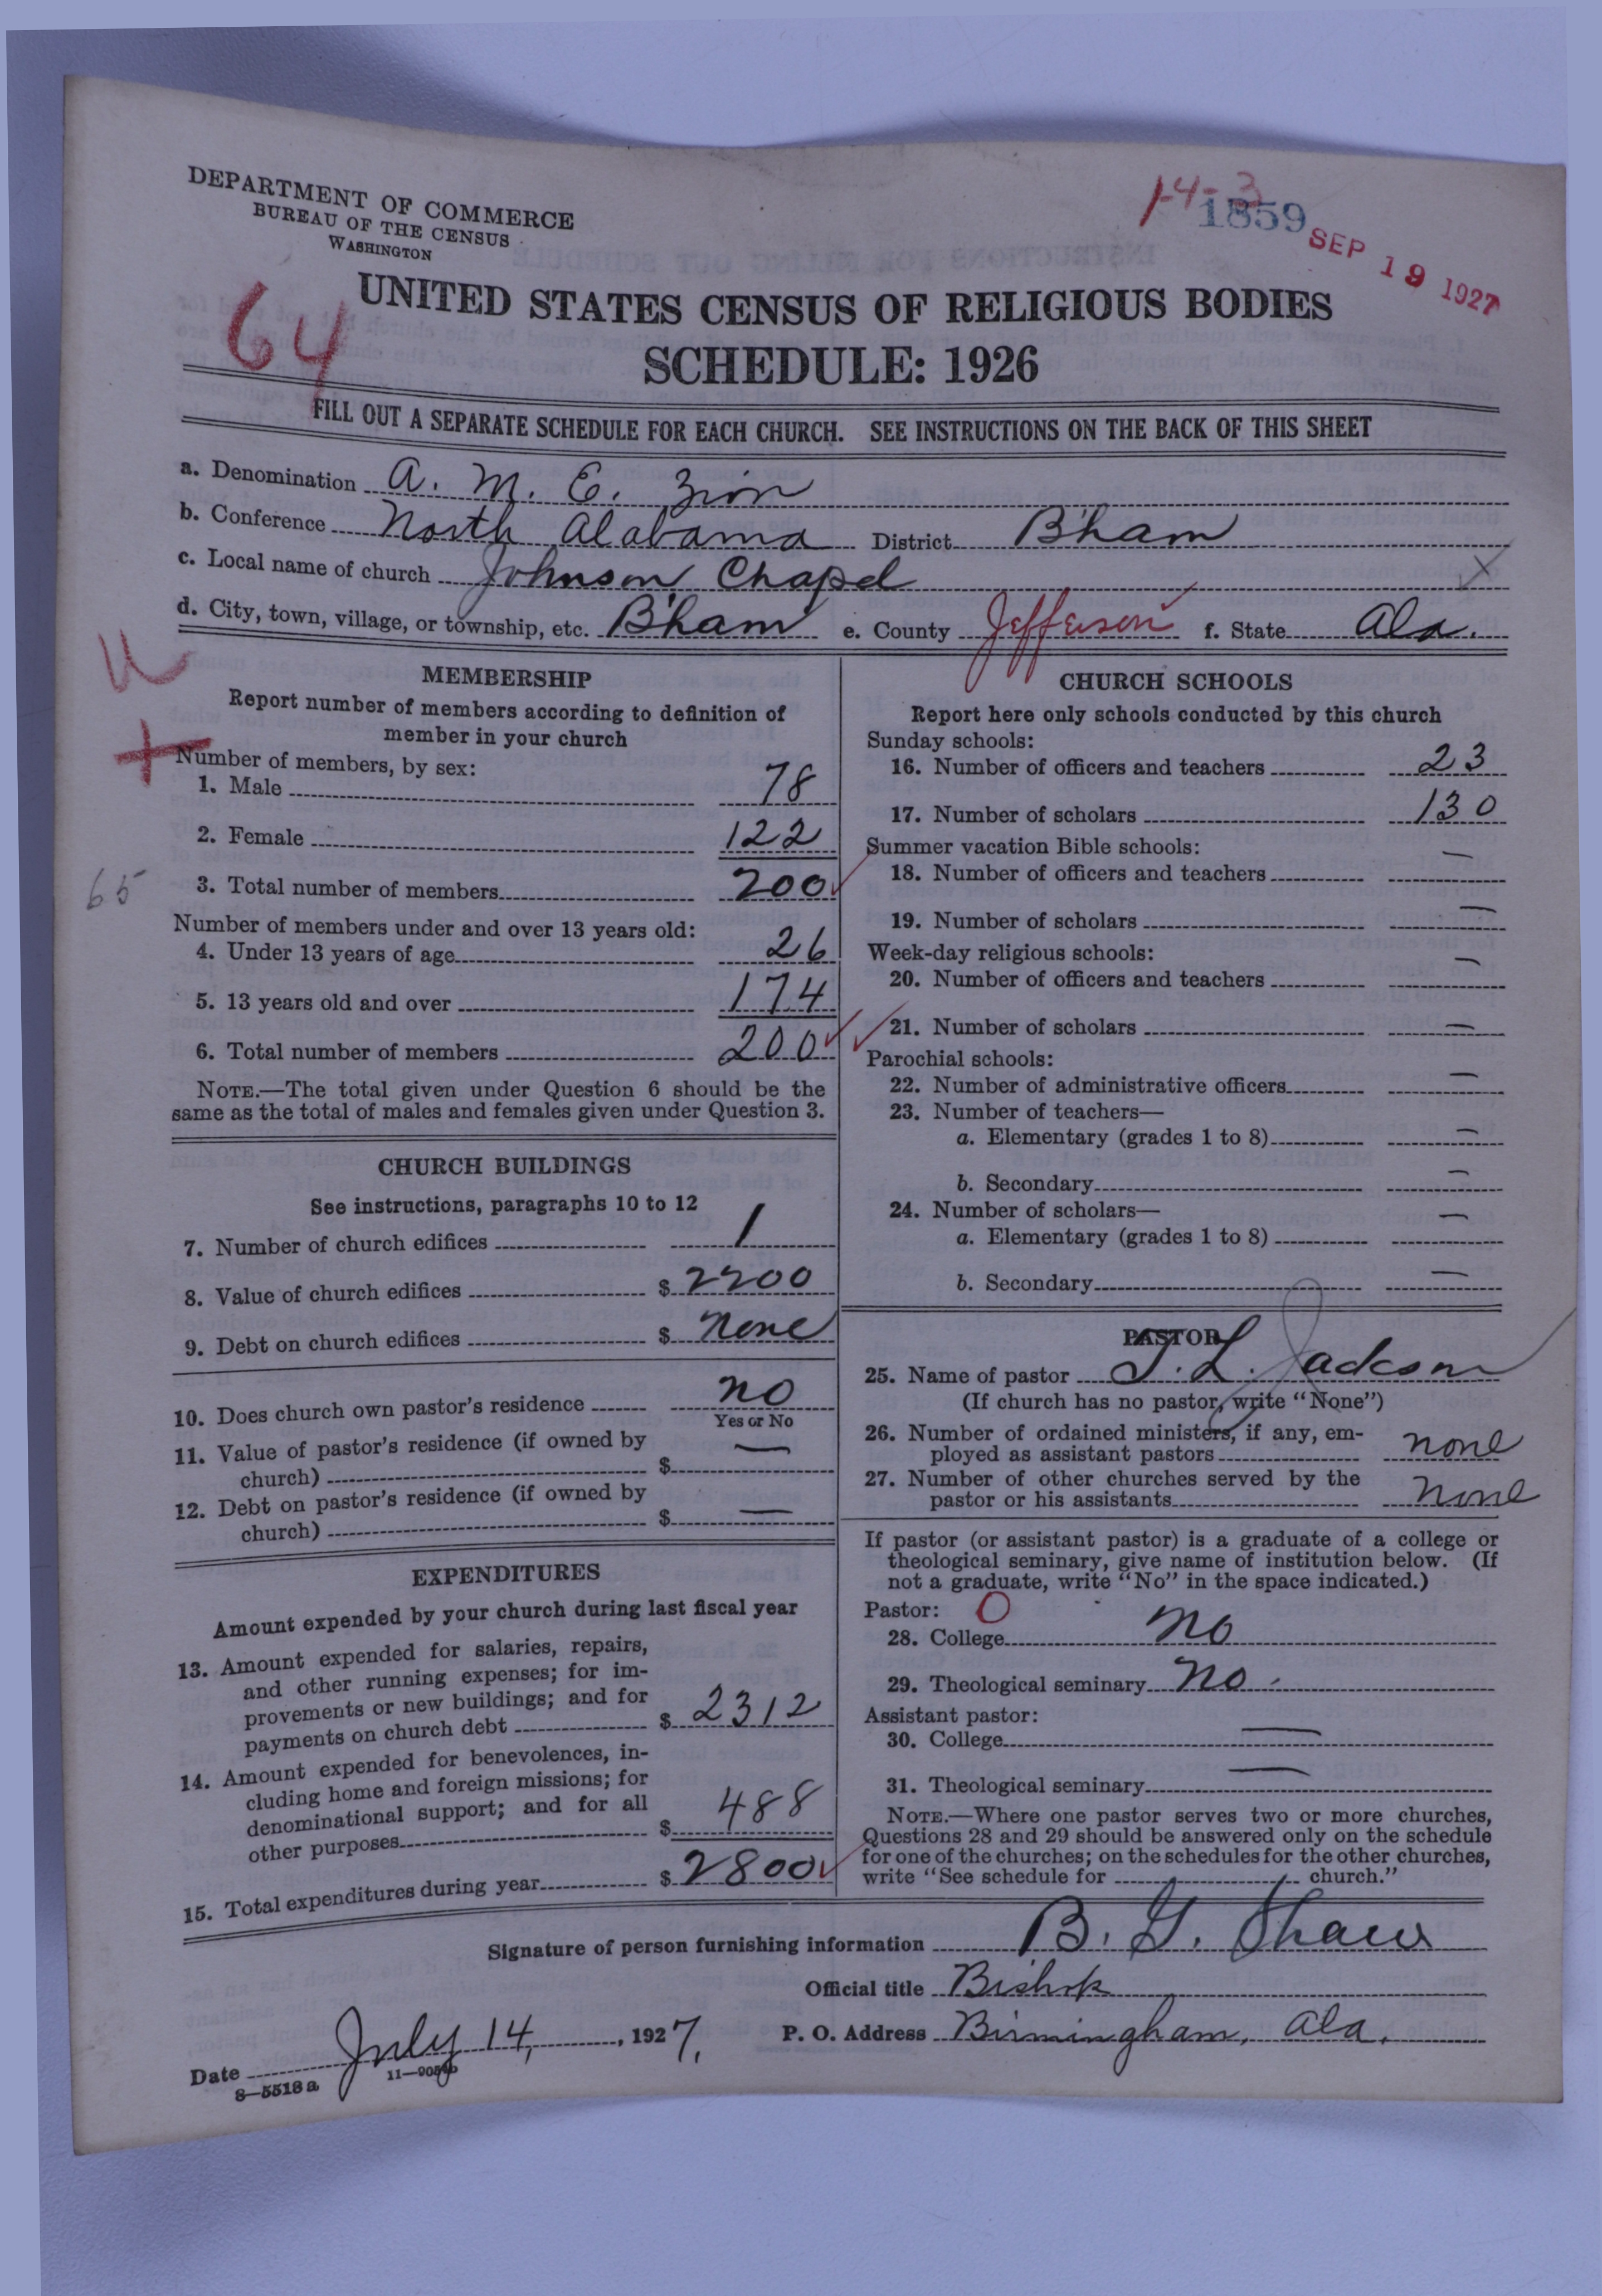 DEPARTMENT OF COMMERCE
BUREAU OF THE CENSUS
WASHINGTON
1-4-3
1859
SEP 19 1927
64
UNITED STATES CENSUS OF RELIGIOUS BODIES
SCHEDULE: 1926
FILL OUT A SEPARATE SCHEDULE FOR EACH CHURCH. SEE INSTRUCTIONS ON THE BACK OF THIS SHEET
a. Denomination A. M. E. Zion
b. Conference North Alabama District B'ham
c. Local name of church Johnson Chapel
d. City, town, village, or township, etc. B'ham e. County Jefferson f. State Ala.
MEMBERSHIP
Report number of members according to definition of
member in your church
Number of members, by sex:
1. Male 78
2. Female 122
65
3. Total number of members 200
Number of members under and over 13 years old:
4. Under 13 years of age 26
5. 13 years old and over 174
6. Total number of members 200
NOTE.—The total given under Question 6 should be the
same as the total of males and females given under Question 3.
CHURCH BUILDINGS
See instructions, paragraphs 10 to 12
7. Number of church edifices 1
8. Value of church edifices $ 2200
9. Debt on church edifices $ None
10. Does church own pastor's residence no
Yes or No
11. Value of pastor's residence (if owned by
church) $ —
12. Debt on pastor's residence (if owned by
church) $ —
EXPENDITURES
Amount expended by your church during last fiscal year
13. Amount expended for salaries, repairs,
and other running expenses; for im-
provements or new buildings; and for
payments on church debt $ 2312
14. Amount expended for benevolences, in-
cluding home and foreign missions; for
denominational support; and for all
other purposes $ 488
15. Total expenditures during year $ 2800
CHURCH SCHOOLS
Report here only schools conducted by this church
Sunday schools:
16. Number of officers and teachers 23
17. Number of scholars 130
Summer vacation Bible schools:
18. Number of officers and teachers —
19. Number of scholars —
Week-day religious schools:
20. Number of officers and teachers —
21. Number of scholars —
Parochial schools:
22. Number of administrative officers —
23. Number of teachers—
a. Elementary (grades 1 to 8) —
b. Secondary —
24. Number of scholars—
a. Elementary (grades 1 to 8) —
b. Secondary —
PASTOR
25. Name of pastor J. L. Jackson
(If church has no pastor, write "None")
26. Number of ordained ministers, if any, em-
ployed as assistant pastors none
27. Number of other churches served by the
pastor or his assistants none
If pastor (or assistant pastor) is a graduate of a college or
theological seminary, give name of institution below. (If
not a graduate, write "No" in the space indicated.)
Pastor: 0
28. College no
29. Theological seminary no
Assistant pastor:
30. College —
31. Theological seminary —
NOTE.—Where one pastor serves two or more churches,
Questions 28 and 29 should be answered only on the schedule
for one of the churches; on the schedules for the other churches,
write "See schedule for church."
Signature of person furnishing information B. G. Shaw
Official title Bishop
Date July 14, 1927. P. O. Address Birmingham, Ala.
8—5518 a